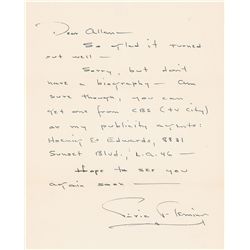 Dear Allan—
So glad it turned
out well—
Sorry, but don't
have a biography— Am
sure though, you can
get one from CBS (TV City)
or my publicity agents:
& Edwards, 8831
Sunset Blvd., L.A. 46—
Hope to see you
again soon—